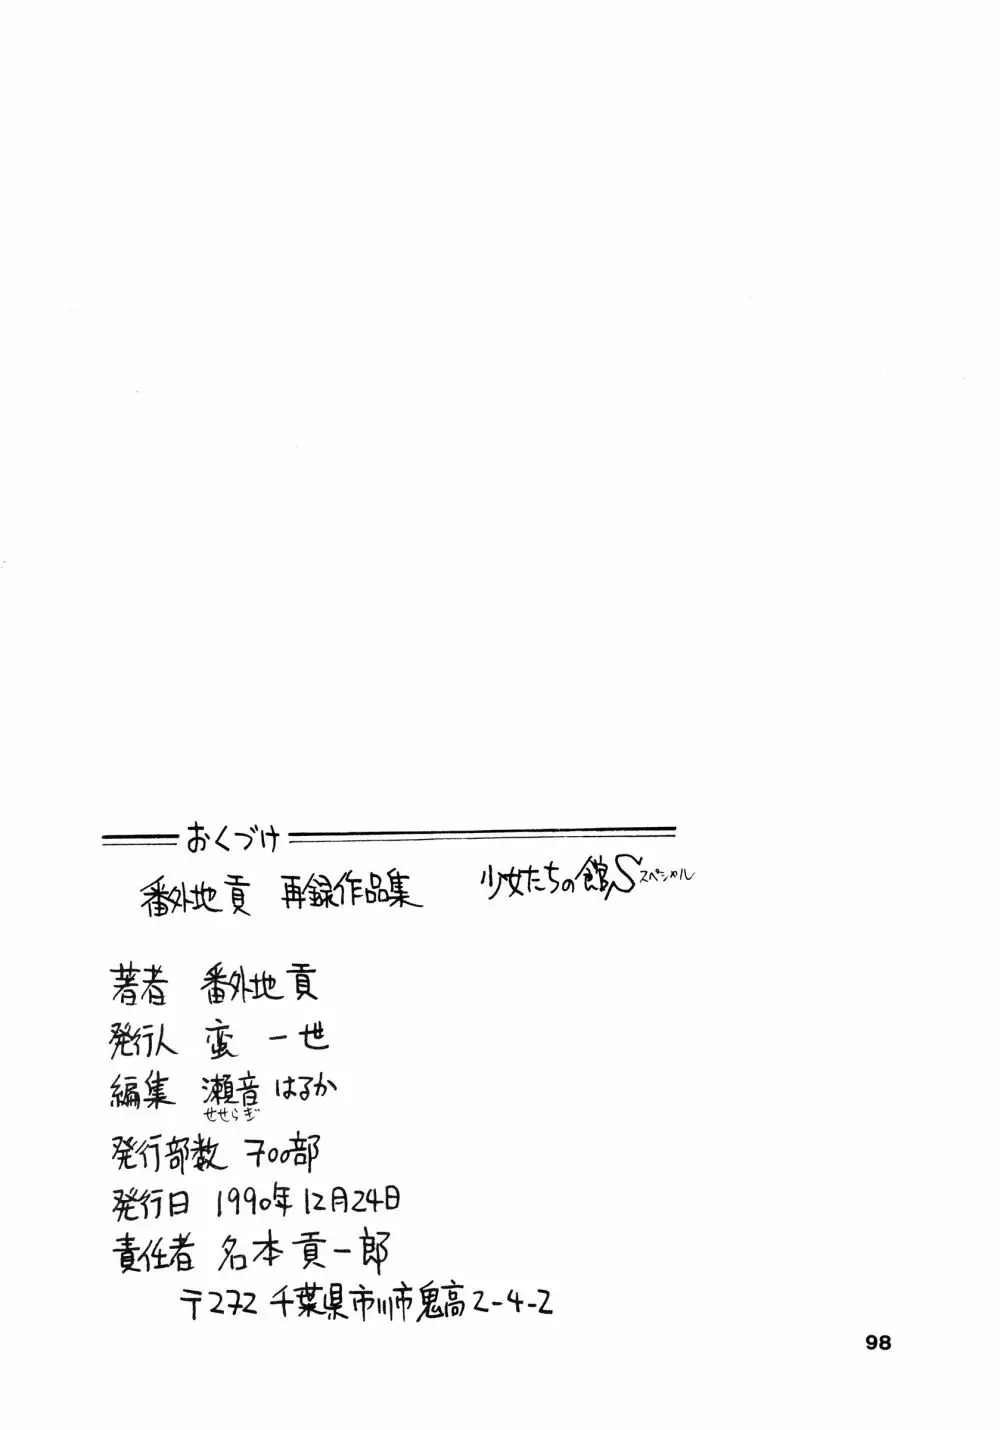 おくづけ
番外地貢 再録作品集 少女たちの館S スペシャル
著者 番外地貢
発行人 蛮 一世
編集 瀬音 はるか
せせらぎ
発行部数 700部
発行日 1990年12月24日
責任者 名本貢一郎
〒272 千葉県市川市鬼高2-4-2
98